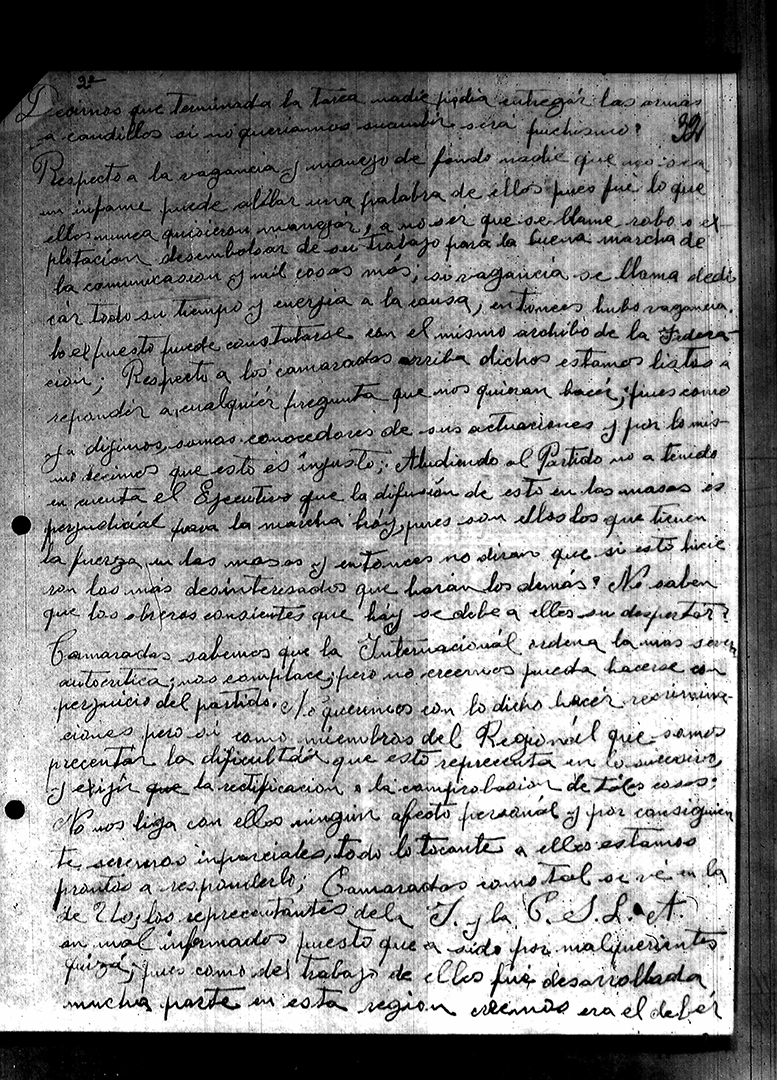 2º
Decirnos que terminada la tarea nadie podia entregar las armas
a caudillos si no queriamos sucumbir será puchismo? 32
Respecto a la vagancia y manejo de fondo nadie que no sea
un infame puede alsar una palabra de ellos pues fué lo que
ellos nunca quisieron manejar, a no ser que se llame robo o ex-
plotación desembolsar de su trabajo para la buena marcha de
la comunicasion y mil cosas más, si vagancia se llama dedi
cár todo su tiempo y energia a la causa, entonces hubo vagancia.
lo expuesto puede constatarse con el mismo archibo de la Federa-
ción; Respecto a los camaradas arriba dichos estamos listos a
reponder a cualquiér pregunta que nos quieran hacér, pues como
ya dijimos, somos conocedores de sus actuaciones y por lo mis-
mo decimos que esto és injusto; Aludiendo al Partido no a tenido
en cuenta el Ejecutivo que la difusión de esto en las masas és
perjudiciál para la marcha hóy, pues son ellos los que tienen
la fuerza en las masas y entonces no diran que si esto hicie
ron los más desinteresados que harán los demás? No saben
que los obreros consientes que háy se debe a ellos su despertár?
Camaradas sabemos que la Internacionál ordena la mas sevér
autocritica; nos complace; pero no creemos pueda hacerse con
perjuicio del partido. No queremos con lo dicho hacér recrimina-
ciones pero sí como miembros del Regionál que somos
precentár la dificultád que esto reprecenta en lo sucecivo,
y exijír que la rectificacion o la comprobasion de táles cosas;
No nos liga con ellos ningun afecto personál y por consiguien
te seremos inparciales, todo lo tocante a ellos estamos
prontos a responderlo; Camaradas como tal se vé en la
de Uds, los reprecentantes de la I. y la C. S. L. A.
an mal informados puesto que a sido por malquerientes
quizá; pues como del trabajo de ellos fué desarrollada
mucha parte en esta region creemos era el debér